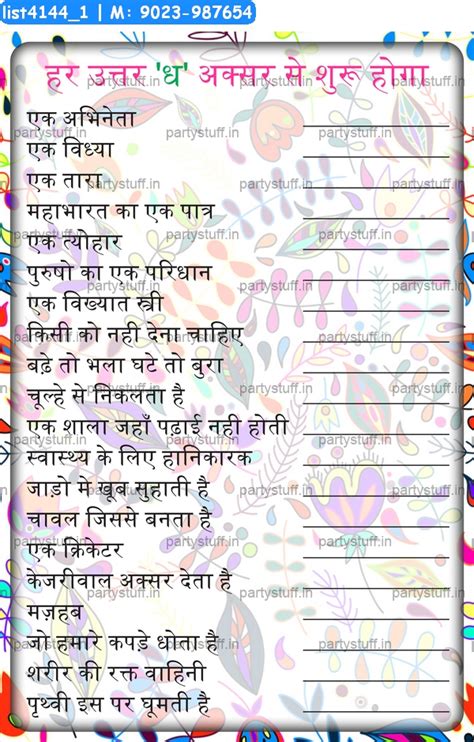 list4144_1 | M: 9023-987654
हर उत्तर 'ध' अक्सर से शुरू होगा
एक अभिनेता
एक विध्या
एक तारा
महाभारत का एक पात्र
एक त्योहार
पुरुषो का एक परिधान
एक विख्यात स्त्री
किसी को नही देना चाहिए
बढ़े तो भला घटे तो बुरा
चूल्हे से निकलता है
एक शाला जहाँ पढ़ाई नही होती
स्वास्थ्य के लिए हानिकारक
जाड़ो में खूब सुहाती है
चावल जिससे बनता है
एक क्रिकेटर
केजरीवाल अक्सर देता है
मज़हब
जो हमारे कपड़े धोता है
शरीर की रक्त वाहिनी
पृथ्वी इस पर घूमती है
partystuff.in